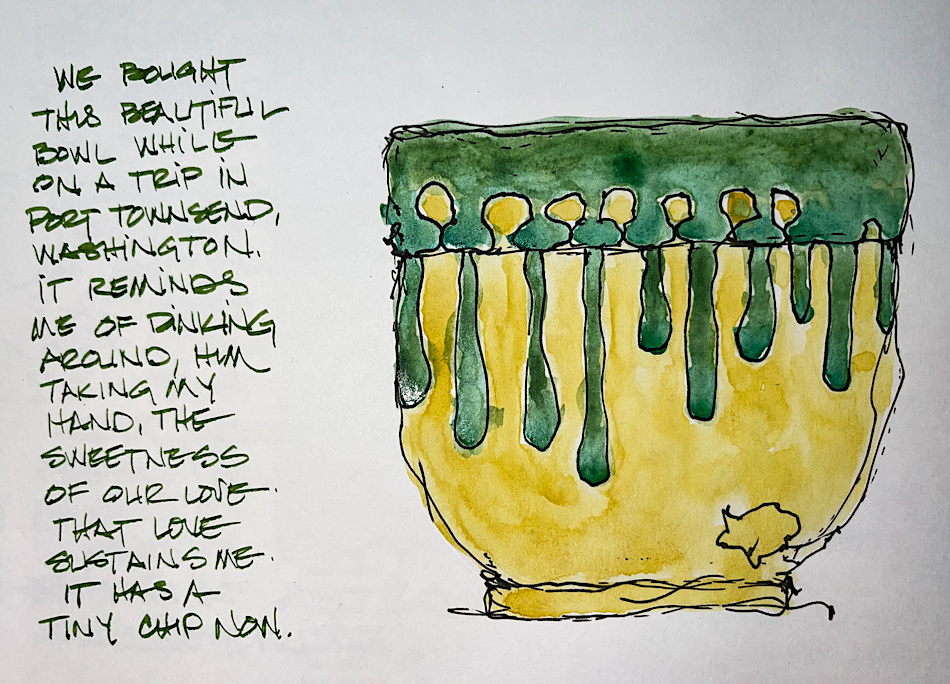 WE BOUGHT
THIS BEAUTIFUL
BOWL WHILE
ON A TRIP IN
PORT TOWNSEND,
WASHINGTON.
IT REMINDS
ME OF DINKING
AROUND, HIM
TAKING MY
HAND, THE
SWEETNESS
OF OUR LOVE.
THAT LOVE
SUSTAINS ME.
IT HAS A
TINY CHIP NOW.